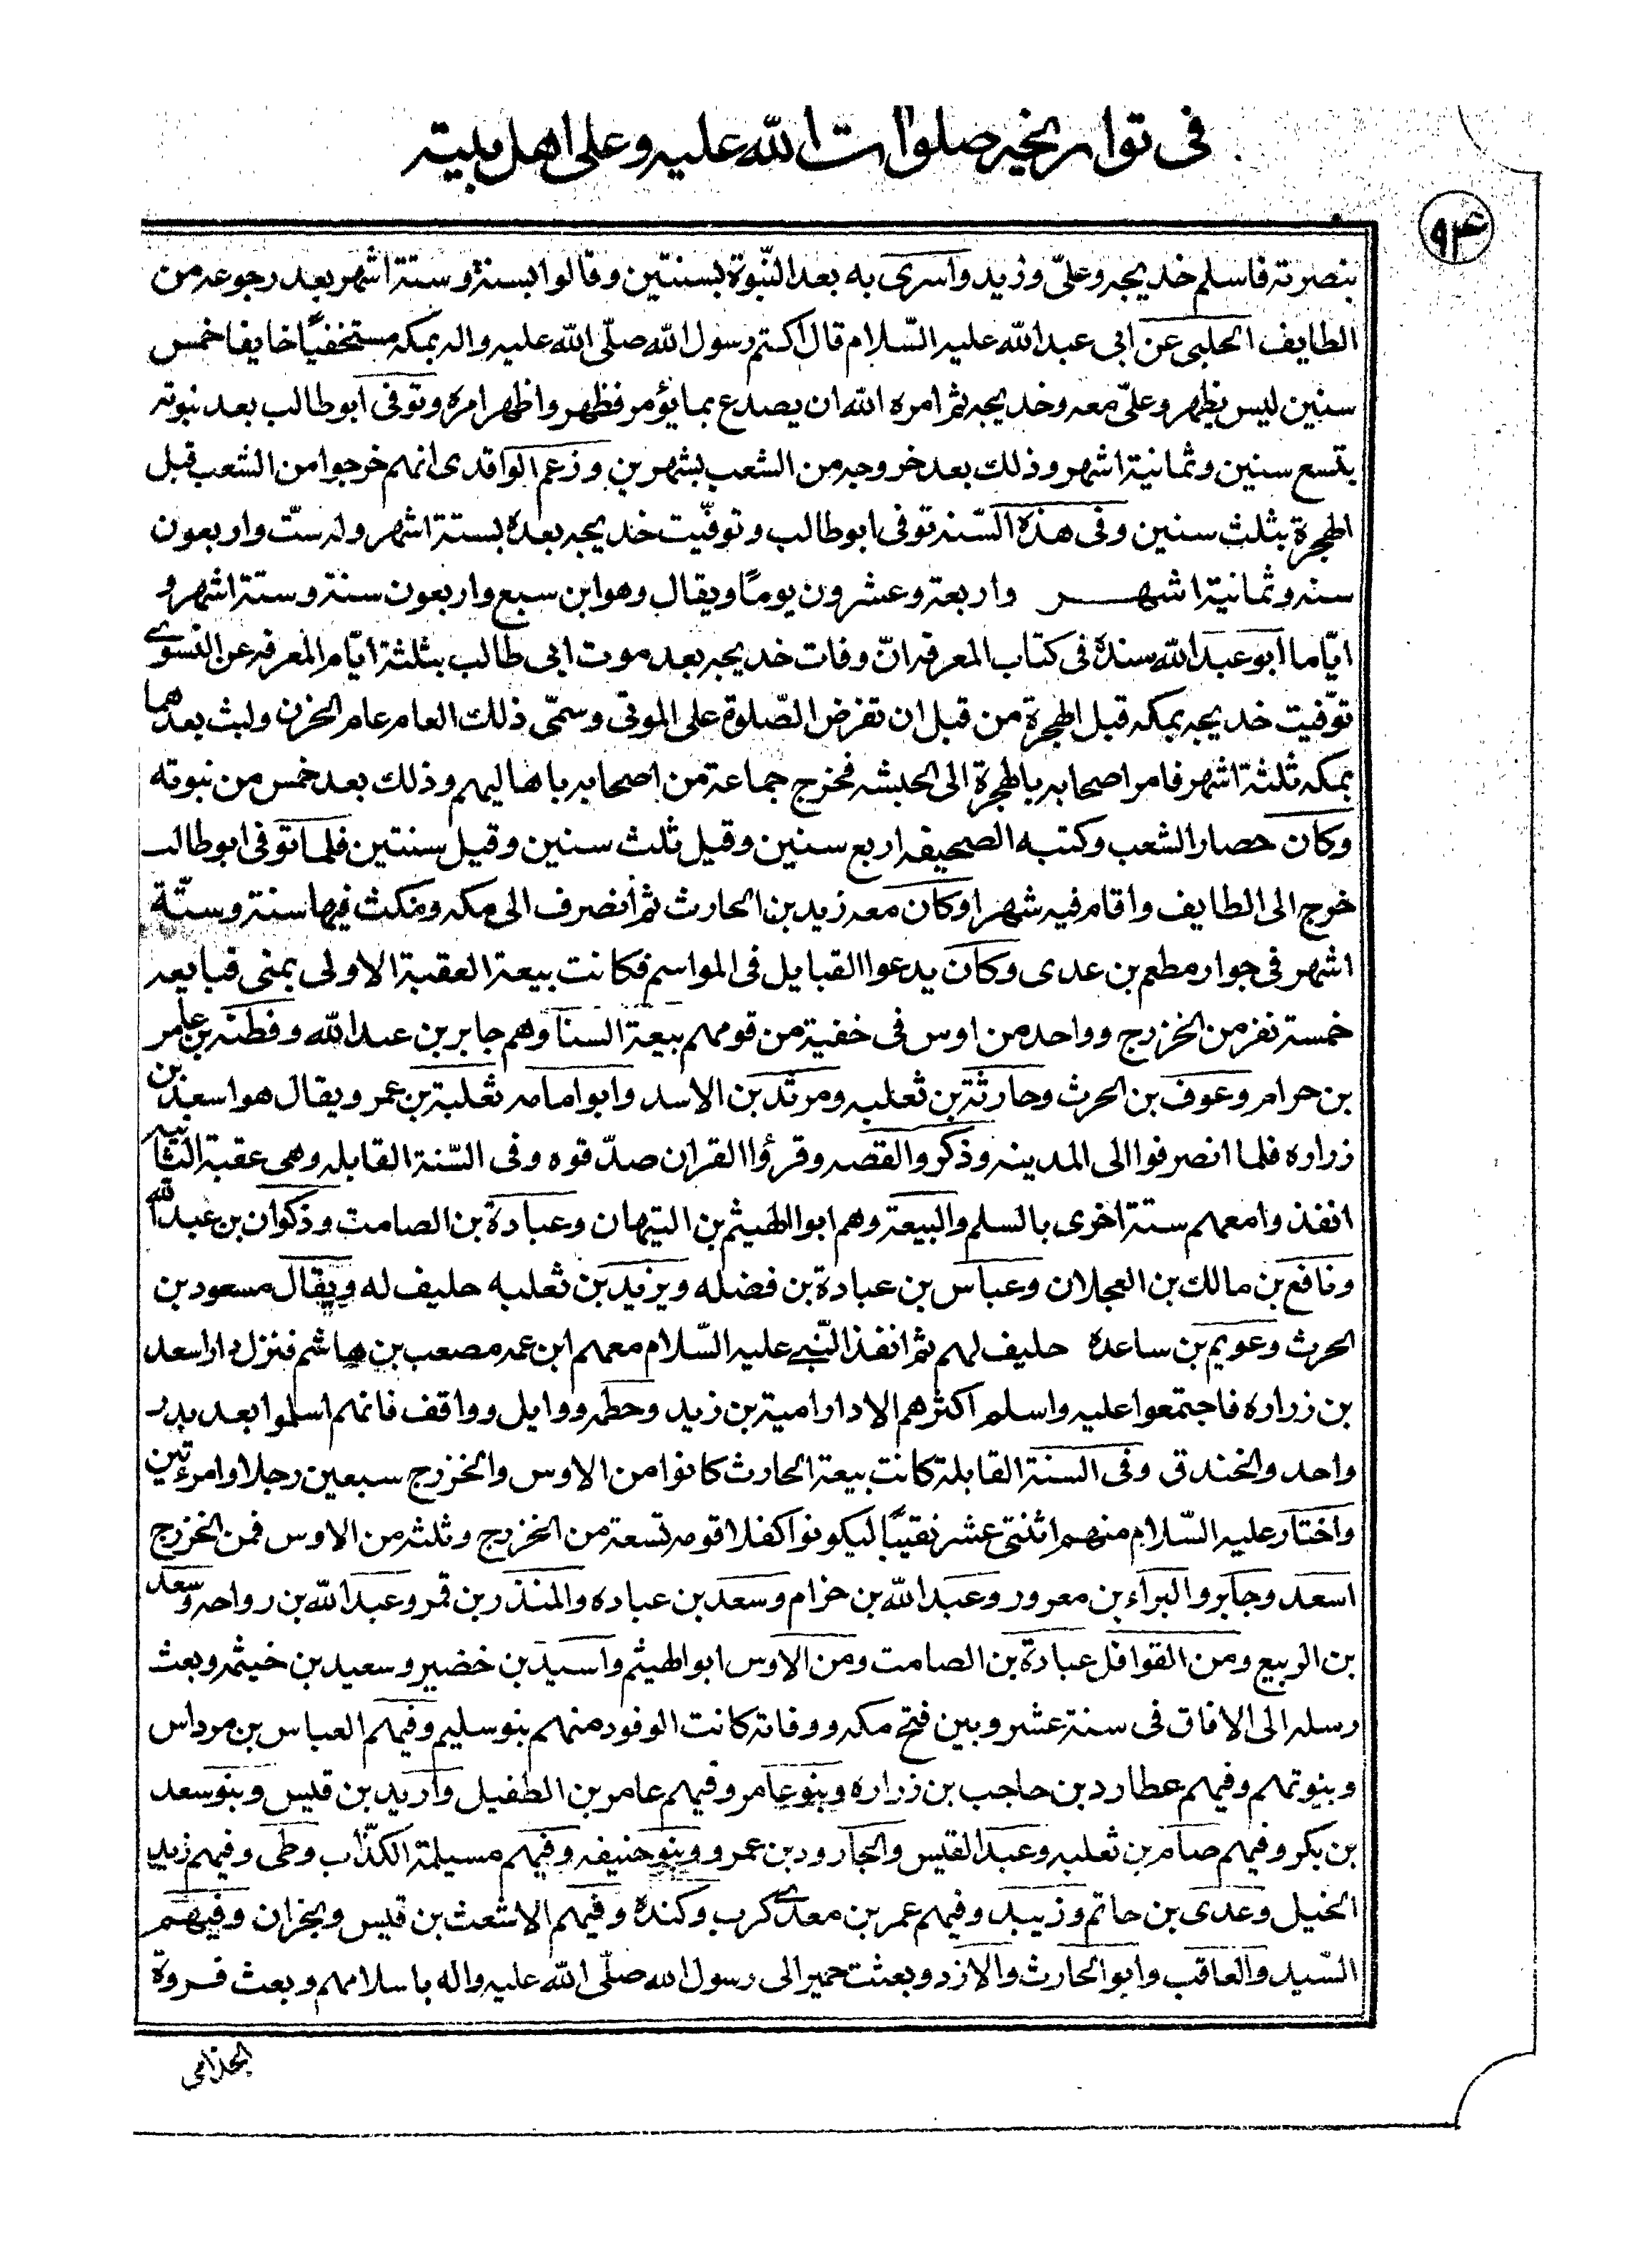 فى تواريخه صلوات الله عليه وعلى اهل بيته
٩٤
بنصرته فاسلم خديجه وعلىّ وزيد واسرى به بعد النّبوة بسنتين وقالوا بسنة وستة اشهر بعد رجوعه من
الطايف الحلبى عن ابى عبد الله عليه السّلام قال اكتتم رسول الله صلّى الله عليه واله بمكه مستخفيًا خايفا خمس
سنين ليس يظهر وعلىّ معه وخديجه ثم امره الله ان يصدع بما يؤمر فظهر واظهر امره وتوفى ابو طالب بعد نبوته
بتسع سنين وثمانية اشهر وذلك بعد خروجه من الشعب بشهرين وزعم الواقدى انهم خرجوا من الشعب قبل
الهجرة بثلث سنين وفى هذه السّنه توفى ابو طالب وتوفّيت خديجه بعده بستة اشهر وله ستّ واربعون
سنه وثمانية اشهر واربعة وعشرون يومًا ويقال وهو ابن سبع واربعون سنة وستة اشهر و
ايّاما ابو عبد الله سنده فى كتاب المعرفه انّ وفات خديجه بعد موت ابى طالب بثلثة ايّام المعرفه عن النسوى
توّفيت خديجه بمكه قبل الهجرة من قبل ان تفرض الصّلوة على الموتى وسمّى ذلك العام عام الحزن ولبث بعدهما
بمكه ثلثة اشهر فامر اصحابه بالهجرة الى الحبشه فخرج جماعة من اصحابه باهاليهم وذلك بعد خمس من نبوته
وكان حصار الشعب وكتبه الصحيفه اربع سنين وقيل ثلث سنين وقيل سنتين فلما توفى ابو طالب
خرج الى الطايف واقام فيه شهرا وكان معه زيد بن الحارث ثم انصرف الى مكه ومكث فيها سنة وستّة
اشهر فى جوار مطعم بن عدى وكان يدعوا القبايل فى المواسم فكانت بيعة العقبة الاولى بمنى فبايعه
خمسة نفر من الخزرج وواحد من اوس فى خفية من قومهم بيعة النسا وهم جابر بن عبد الله وفطنه بن عامر
بن حرام وعوف بن الحرث وحارثة بن ثعلبه ومرثد بن الاسد وابو امامه ثعلبة بن عمر ويقال هو اسعد بن
زراره فلما انصرفوا الى المدينه وذكروا القصه وقرؤا القران صدّقوه وفى السّنة القابله وهى عقبة الثانيه
انفذوا معهم ستة اخرى بالسلم والبيعة وهم ابو الهيثم بن التيهان وعبادة بن الصامت وذكوان بن عبد الله
ونافع بن مالك بن العجلان وعباس بن عبادة بن فضله ويزيد بن ثعلبه حليف له ويقال مسعود بن
الحرث وعويم بن ساعده حليف لهم ثم انفذ النّبى عليه السّلام معهم ابن عمه مصعب بن هاشم فنزل دار اسعد
بن زراره فاجتمعوا عليه واسلم اكثرهم الا دار امية بن زيد وحطمه ووايل وواقف فانهم اسلموا بعد بدر
واحد والخندق وفى السنة القابلة كانت بيعة الحارث كانوا من الاوس والخزرج سبعين رجلا وامرءتين
واختار عليه السّلام منهم اثنتى عشر نقيبًا ليكونوا كفلا قومه تسعة من الخزرج وثلثه من الاوس فمن الخزرج
اسعد وجابر والبراء بن معرور وعبد الله بن حزام وسعد بن عباده والمنذر بن قمر وعبد الله بن رواحه وسعد
بن الربيع ومن القوافل عبادة بن الصامت ومن الاوس ابو الهيثم واسيد بن خضير وسعيد بن خيثمه وبعث
رسله الى الافاق فى سنة عشر وبين فتح مكه ووفاته كانت الوفود منهم بنو سليم وفيهم العباس بن مرداس
وبنو تمهم وفيهم عطارد بن حاجب بن زراره وبنو عامر وفيهم عامر بن الطفيل واربد بن قيس وبنو سعد
بن بكر وفيهم صام بن ثعلبه وعبد القيس والجارود بن عمرو وبنو حنيفه وفيهم مسيلمة الكذّاب وطى وفيهم زيد
الخيل وعدى بن حاتم وزبيد وفيهم عمر بن معدى كرب وكنده وفيهم الاشعث بن قيس ونجران وفيهم
السّيد والعاقب وابو الحارث والازد وبعثت حمير الى رسول الله صلّى الله عليه واله باسلامهم وبعث فروة
الجذامى